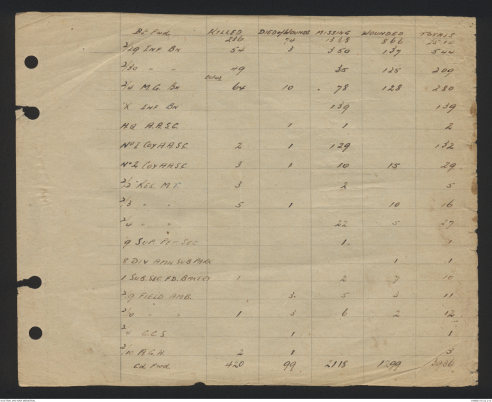 Bt Fwd KILLED DIED/WOUNDS MISSING WOUNDED TOTALS
74 866
2/29 INF BN 54 3 350 137 544
2/30 " " 49 35 125 209
2/4 M.G. BN 64 10 78 128 280
"X" INF BN 139 139
HQ A.A.S.C. 1 1 2
No 1 COY A.A.S.C 2 1 129 132
No 2 COY A.A.S.C 3 1 10 15 29
2/2 RES. M.T. 3 2 5
2/3 " " 5 1 10 16
2/4 " " 22 5 27
9 SUP. Pt-SEC 1 1
8 DIV AMN SUB PARK 1 1
1 SUB. SEC. FD. BAKERY 1 2 7 10
2/9 FIELD AMB. 3 5 3 11
2/10 " " 1 3 6 2 12
2/4 C.C.S 1 1
2/10 A.G.H. 2 1 3
Cd Fwd 420 99 2118 1299 3936